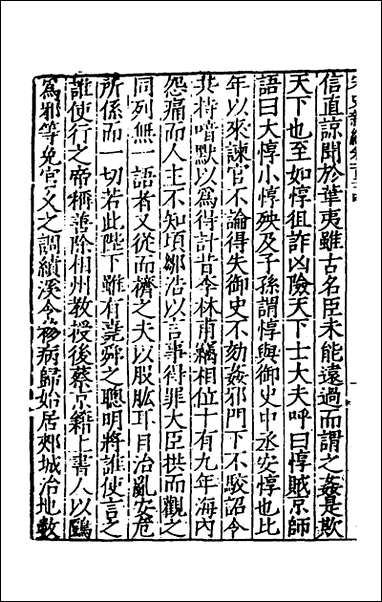 信直諒聞於華夷雖古名臣未能遠過而謂之姦是欺
天下也至如惇狙詐凶險天下士大夫呼曰惇賊京師
語曰大惇小惇殃及子孫謂惇與御史中丞安惇也比
年以來諫官不論得失御史不劾姦邪門下不駮詔令
共持喑默以爲得計昔李林甫竊相位十有九年海內
怨痛而人主不知頃鄒浩以言事得罪大臣拱而觀之
同列無一語者又從而擠之夫以股肱耳目治亂安危
所係而一切若此陛下雖有堯舜之聰明將誰使言之
誰使行之帝稱善除相州教授後蔡京籍上書人以鷗
爲邪等免官久之調績溪令移病歸始居郟城治地數